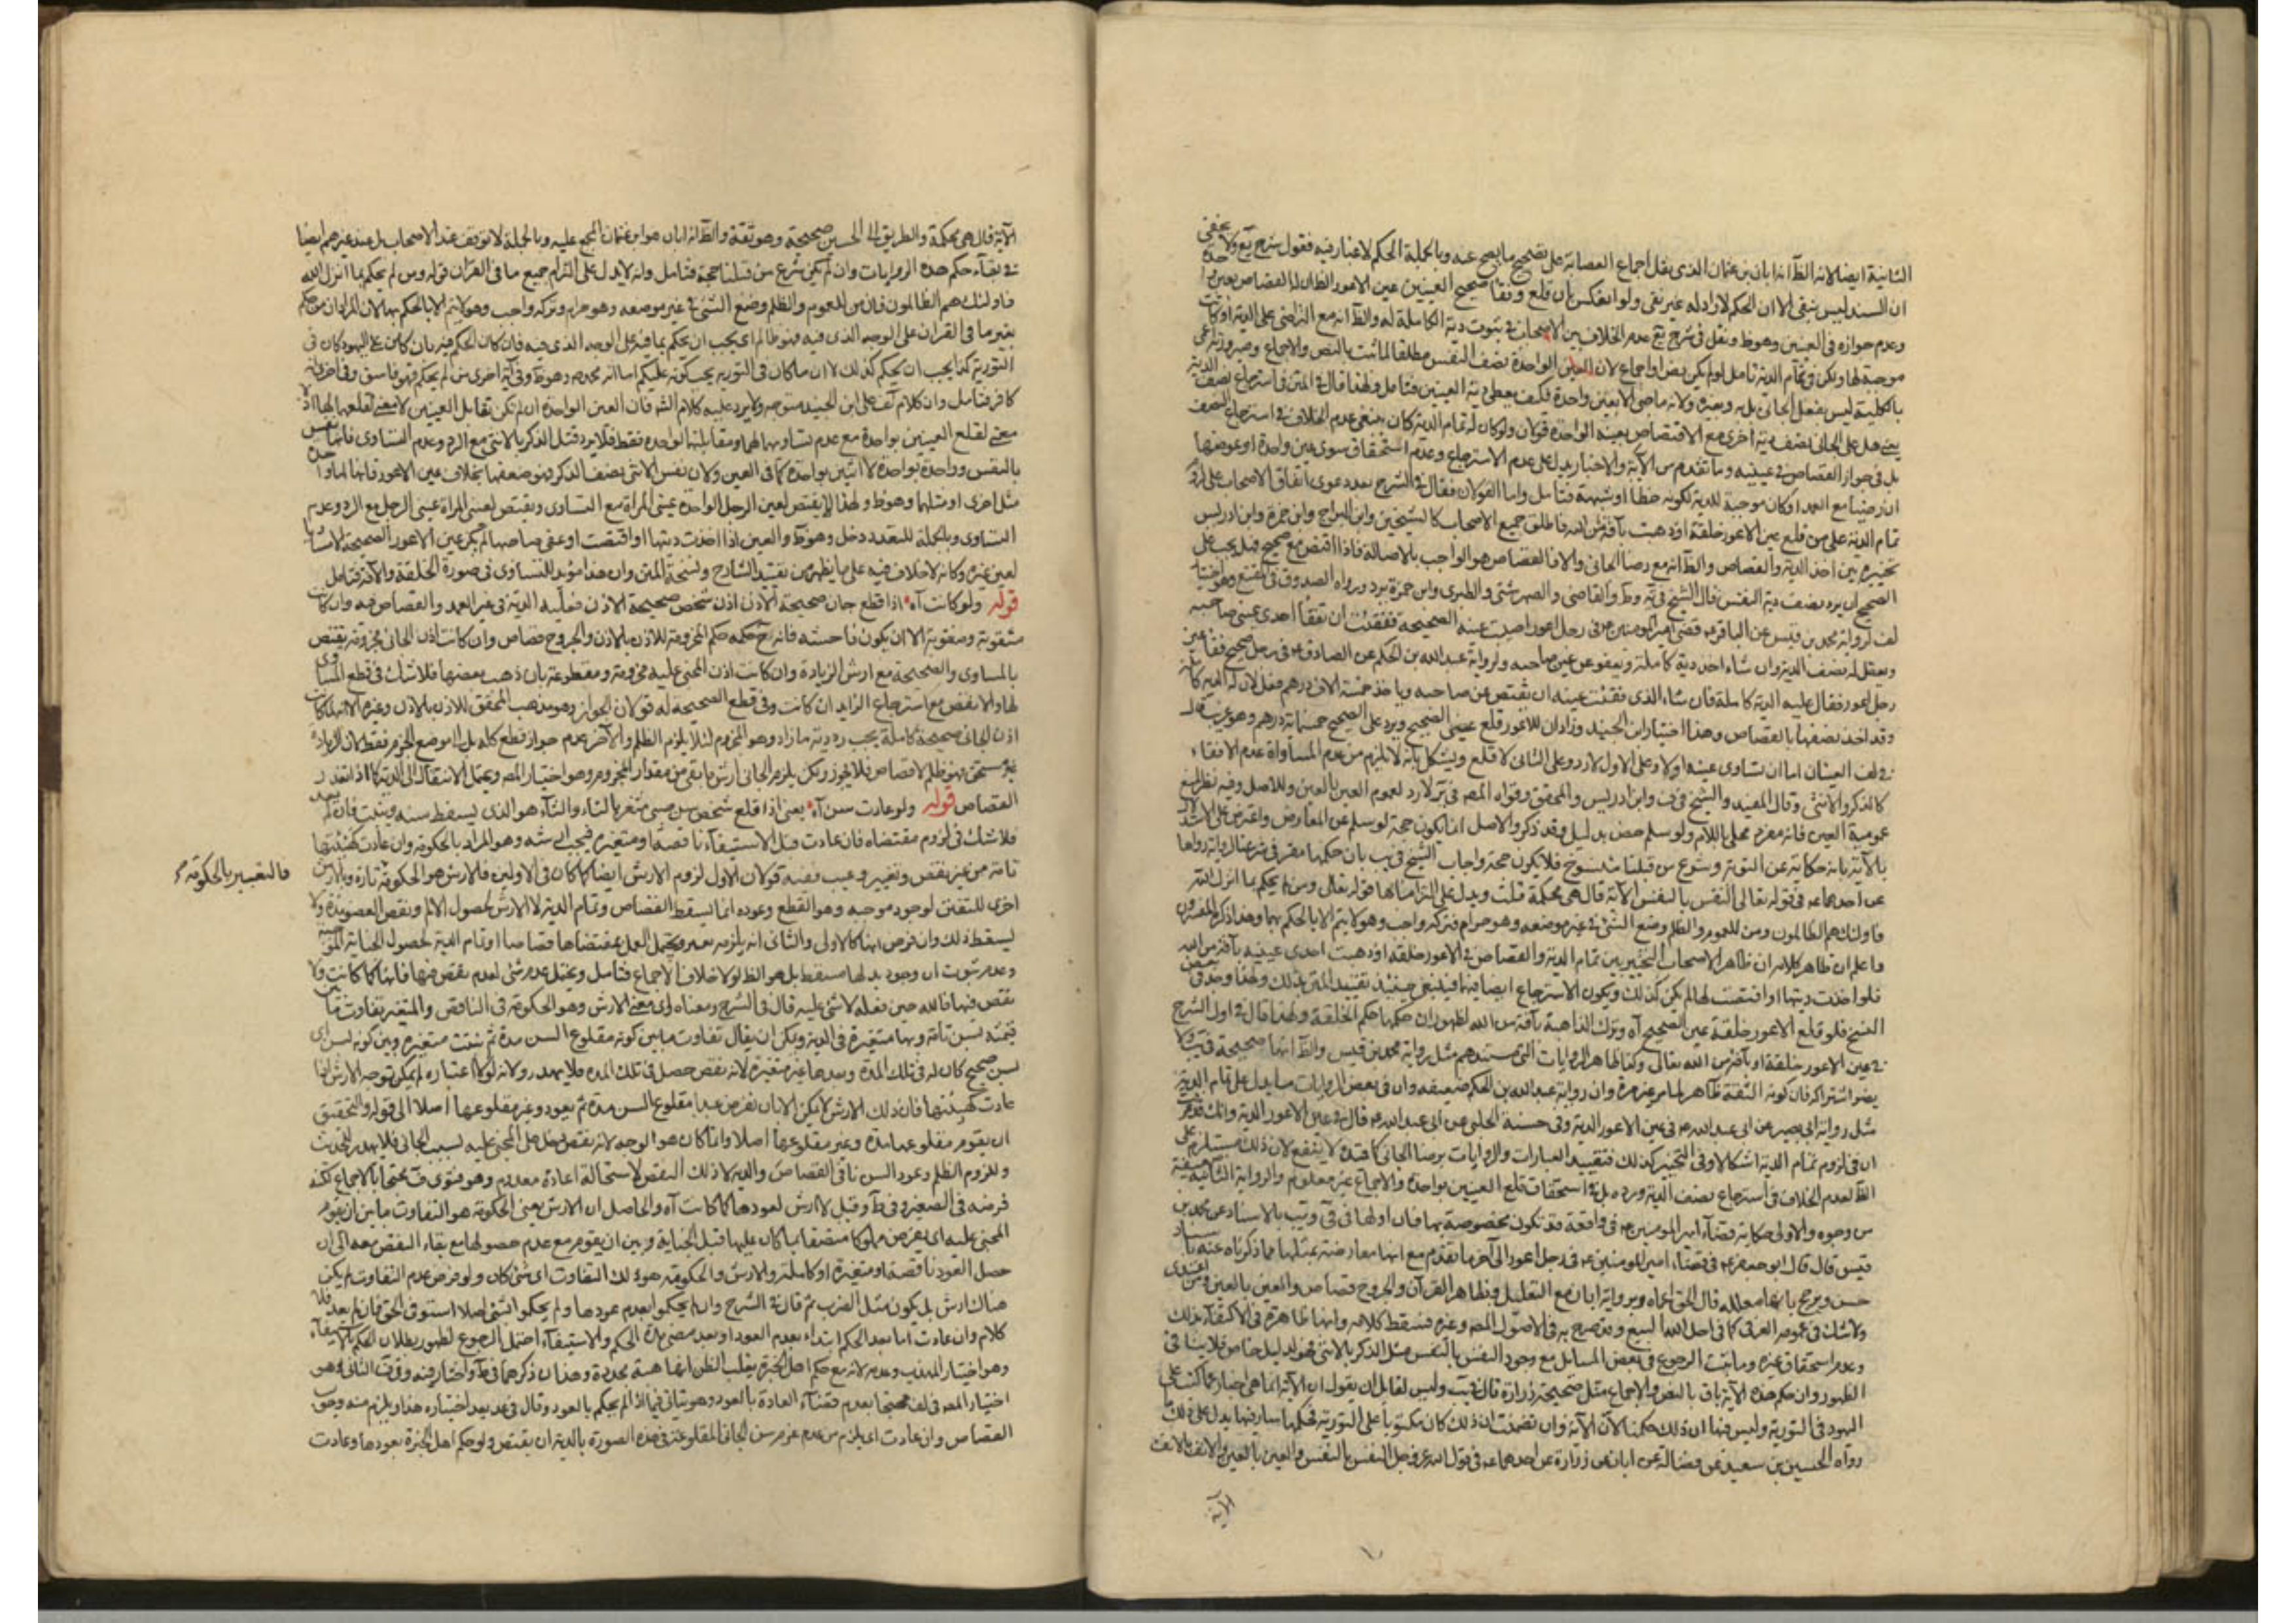 الثانية ايضا لانه الظ انه ابان بن عثمان الذى نقل اجماع العصابة على تصحيح ما يصح عنه وبالجملة الحكم لا غبار فيه فقول شرح يع ولا يخفى
ان السند ليس بنقى الا ان الحكم لا راد له غير نقى ولو انعكس بان قلع وفقأ صحيح العينين عين الاعور الظ ان له القصاص بعين واحدة
وعدم جوازه فى العينين وهو ظ ونقل فى شرح يع عدم الخلاف بين الاصحاب فى ثبوت دية الكاملة له والظ انه مع التراضى على الدية او كانت
موجبة لها ولكن فى تمام الدية تامل لو لم يكن نص او اجماع لان العين الواحدة نصف النفس مطلقا لما ثبت بالنص والاجماع وصيرورته اعمى
بالكلية ليس بفعل الجانى بل به وبغيره ولانه ما جنى الا بعين واحدة فكيف يعطى دية العينين فتامل ولهذا قال فى المتن فى استرجاع نصف الدية
يعنى هل على الجانى نصف دية اخرى مع الاقتصاص بعينه الواحدة قولان ولو كان له تمام الدية كان ينبغى عدم الخلاف فى استرجاع النصف
بل فى جواز القصاص فى عينيه وما تقدم من الآية والاخبار يدل على عدم الاسترجاع وعدم استحقاق سوى عين واحدة او عوضها
ان رضيا مع العمد او كان موجبة للدية لكونه خطأ او شبهة فتامل واما القولان فقال فى الشرح بعد دعوى اتفاق الاصحاب على لزوم
تمام الدية على من قلع عين الاعور خلقة او ذهبت بآفة من الله فاطلق جميع الاصحاب كالشيخين وابن البراج وابن حمزة وابن ادريس
تخييره بين اخذ الدية والقصاص والظ انه مع رضا الجانى والا فالقصاص هو الواجب بالاصالة فاذا اقتص مع صحيح فهل يجب على
الصحيح ان يرد نصف دية النفس قال الشيخ فى ية وط والقاضى والصهرشتى والطبرى وابن حمزة يرد ورواه الصدوق فى المقنع وهو اختيار
لف لرواية محمد بن قيس عن الباقر ع قضى امير المؤمنين ع فى رجل اعور اصيبت عينه الصحيحة ففقئت ان تفقأ احدى عينى صاحبه
ويعقل له نصف الدية وان شاء اخذ دية كاملة ويعفو عن عين صاحبه ولرواية عبد الله بن الحكم عن الصادق ع فى رجل صحيح فقأ عين
رجل اعور فقال عليه الدية كاملة فان شاء الذى فقئت عينه ان يقتص من صاحبه وياخذ خمسة الاف درهم فعل لان له الدية كاملة
وقد اخذ نصفها بالقصاص وهذا اختيار ابن الجنيد وزاد ان للاعور قلع عينى الصحيح ويرد على الصحيح خمسمائة درهم وهو غريب قال
فى لف العينان اما ان تساوى عينه او لا وعلى الاول لا رد وعلى الثانى لا قلع ويشكل بانه لا يلزم من عدم المساواة عدم الاقتفاء
كالذكر والانثى وقال المفيد والشيخ فى ف وابن ادريس والمحقق وقواه المص فى ير لا رد لعموم العين بالعين وللاصل وفيه نظر لمنع
عمومية العين فانه مفرد محلى باللام ولو سلم خص بدليل وقد ذكر والاصل انما يكون حجة لو سلم عن المعارض واعترض على الاستدلال
بالآية بانه حكاية عن التورية وشرع من قبلنا منسوخ فلا يكون حجة واجاب الشيخ فى يب بان حكمها مقر فى شرعنا لرواية زرارة
عن احدهما ع فى قوله تعالى النفس بالنفس الآية قال هى محكمة قلت ويدل على التزامنا لها قوله تعالى ومن لم يحكم بما انزل الله
فاولئك هم الظالمون ومن للعموم والظلم وضع الشئ فى غير موضعه وهو حرام فتركه واجب وهو لا يتم الا بالحكم بها وهذا ذكره المفسرون
واعلم ان ظاهر كلامه ان ظاهر الاصحاب التخيير بين تمام الدية والقصاص فى الاعور خلقه او ذهبت احدى عينيه بآفة من الله
فلو اخذت ديتها او اقتصت لها لم يكن كذلك ويكون الاسترجاع ايضا فيهما فينبغى حينئذ تقييد المتن بذلك ولهذا وجد فى بعض
النسخ فلو قلع الاعور خلقة عين الصحيح آه وترك الذاهبة بآفة من الله لظهور ان حكمها حكم الخلقة ولهذا قال فى اول الشرح
فى عين الاعور خلقة او بآفة من الله تعالى وكذا ظاهر الروايات التى مستندهم مثل رواية محمد بن قيس والظ انها صحيحة فى يب ولا
يضر اشتراكه فان كونه الثقة ظاهر لما مر غير مرة وان رواية عبد الله بن الحكم ضعيفه وان فى بعض الروايات ما يدل على تمام الدية
مثل رواية ابى بصير عن ابى عبد الله ع فى عين الاعور الدية وفى حسنة الحلبى عن ابى عبد الله ع قال فى عين الاعور الدية وانك قد عرفت
ان فى لزوم تمام الدية اشكالا وفى التخيير كذلك فتقييد العبارات والروايات برضا الجانى كما قيده لا ينفع لان ذلك مستلزم على
الظ لعدم الخلاف فى استرجاع نصف الدية ورده بل فى استحقاق قلع العينين بواحدة والاجماع غير معلوم والرواية الثانية ضعيفة
من وجوه والاولى حكاية قضاء امير المؤمنين ع فى واقعة قد تكون مخصوصة بها فان اولها فى فى ويب بالاسناد عن محمد بن
قيس قال قال ابو جعفر ع فى قضاء امير المؤمنين ع فى رجل اعور الى آخر ما تقدم مع انها معارضة بمثلها مما ذكرناه عنه باسناد
حسن ويرجح بانها معللة قال الحق اعماه وبرواية ابان مع التعليل وظاهر القرآن والجروح قصاص والعين بالعين ومن اعتدى
ولا شك فى عموم العرفى كما فى احل الله البيع وقد صرح به فى الاصول المص وغيره فسقط كلامه وانها ظاهرة فى الاكتفاء بذلك
وعدم استحقاق غيره وما يثبت الرجوع فى بعض المسايل مع وجود النفس بالنفس مثل الذكر بالانثى فهو لدليل خاص فلا ينافى
الظهور وان حكم هذه الآية باق بالنص والاجماع مثل صحيحة زرارة قال فى يب وليس لقايل ان يقول ان الآية انما هى اخبار عما كتب على
اليهود فى التورية وليس فيها ان ذلك حكمنا لان الآية وان تضمنت ان ذلك كان مكتوبا على اليهود فحكمها سار فينا يدل على ذلك
رواه الحسين بن سعيد عن فضالة عن ابان عن زرارة عن احدهما ع فى قول الله عز وجل النفس بالنفس والعين بالعين والانف بالانف
الآية
الآية قال هى محكمة والطريق الى الحسين صحيحة وهو ثقة والظ انه ابان هو ابن عثمان المجمع عليه وبالجملة لا توقف عند الاصحاب بل عند غيرهم ايضا
فى بقاء حكم هذه الروايات وان لم يكن شرع من قبلنا حجة فتامل وانه لا يدل على التزام جميع ما فى القرآن قوله ومن لم يحكم بما انزل الله
فاولئك هم الظالمون فان من للعموم والظلم وضع الشئ فى غير موضعه وهو حرام وتركه واجب وهو لا يتم الا بالحكم بها لان المراد ان من حكم
بغير ما فى القران على الوجه الذى فيه فهو ظالم اى يجب ان يحكم بما فيه على الوجه الذى فيه فان كان الحكم فيه بان كان على اليهود كان فى
التورية كذا يجب ان يحكم كذلك لا ان ما كان فى التورية يجب كونه عليكم
كافر فتامل وان كلام لف على ابن الجنيد متوجه ولا يرد عليه كلام الش فان العين الواحدة ان لم تكن تقابل العينين لا معنى لقلعهما لها اذ لا
معنى لقلع العينين بواحدة مع عدم تساويهما لها ومقابلتها لواحدة فقط فلا يرد قتل الذكر بالانثى مع الرد وعدم التساوى فانها نفس
بالنفس وواحدة بواحدة لا اثنين بواحدة كما فى العين ولان نفس الانثى نصف الذكر فهو ضعفها بخلاف عين الاعور فانها اما واحدة
مثل اخرى او مثلهما وهو ظ ولهذا لا يقتص لعين الرجل الواحدة عينى المراة مع التساوى ويقتص لعينى المراة عينى الرجل مع الرد وعدم
التساوى وبالجملة للتعدد دخل وهو ظ والعين اذا اخذت ديتها او اقتصت او عفى صاحبها لم يكن عين الاعور الصحيحة
لعين غيره وكانه لا خلاف فيه على ما يظهر من تقييد الشارح ونسخة المتن وان هذا مؤيد للتساوى فى صورة الخلقة والآفة فتامل
قوله ولو كانت آه اذا قطع جان صحيحة الاذن اذن شخص صحيحة الاذن فعليه الدية فى غير العمد والقصاص فيه وان كانت
مثقوبة ومثقوبة الا ان يكون فاحشه فانه ح حكمه حكم المخرومة للاذن بالاذن والجروح قصاص وان كانت اذن الجانى مخرومة يقتص
بالمساوى والصحيحة مع ارش الزيادة وان كانت اذن المجنى عليه مخرومة ومقطوعة بان ذهب بعضها فلا شك فى قطع المساوى
لها والانقص مع استرجاع الزايد ان كانت وفى قطع الصحيحة له قولان الجواز وهو مذهب المحقق للاذن بالاذن وغيره
اذن الجانى صحيحة كاملة يجب رد دية ما زاد وهو المخروم لئلا يلزم الظلم والآخر عدم جواز قطع كله بل الى موضع الخرم فقط لان الزيادة
غير مستحق فهو ظلم لا قصاص فلا يجوز ولكن يلزم الجانى ارش ما بقى من مقدار المخروم وهو اختيار المص ويحتمل الانتقال الى الدية كما اذا تعذر
القصاص قوله ولو عادت سن آه يعنى اذا قلع شخص سن صبى مثغر بالثاء والتاء هو الذى يسقط سنه وينبت فان لم يعد
فلا شك فى لزوم مقتضاه فان عادت قبل الاستيفاء ناقصة او متغيرة فيجب ارشه وهو المراد بالحكومة وان عادت كهيئتها
تامة من غير نقص وتغيير وعيب ففيه قولان الاول لزوم الارش ايضا كما كان فى الاولين فالارش هو الحكومة تارة وبالارش
فالتعبير بالحكومة
اخرى للتفنن لوجود موجبه وهو القطع وعوده انما يسقط القصاص وتمام الدية لا الارش لحصول الالم ونقص العضو مدة ولا
يسقط ذلك وان فرض انها كالاولى والثانى انه يلزمه تعزير ويحتمل العمل بمقتضاها قصاصا او تمام الدية لحصول الجناية الموجبة
وعدم ثبوت ان وجود بدلها مسقط بل هو الظ لولا خلاف الاجماع فتامل ويحتمل عدم شئ لعدم نقص فيها فانها كما كانت ولا
نقص فيها قاله حين فعله لا شئ عليه قال فى الشرح ومعناه اى معنى الارش وهو الحكومة فى الناقص والمتغير تفاوت ما بين
قيمته بسن تامة وبها متغيرة فى الدية ويمكن ان يقال تفاوت ما بين كونه مقلوع السن مدة ثم نبتت متغيرة وبين كونه بسن اى
بسن صحيح كان له فى تلك المدة وبعدها غير متغيرة لانه نقص حصل فى تلك المدة فلا يهدر ولانه لولا اعتباره لم يمكن توجه الارش اذا
عادت كهيئتها فان ذلك الارش لا يمكن الا بان نفرض عبدا مقلوع السن مدة ثم يعود وغير مقلوعها اصلا الى قوله والتحقيق
ان يقوم مقلوعها مدة وغير مقلوعها اصلا وانما كان هو الوجه لانه نقص دخل على المجنى عليه بسبب الجانى فلا يهدر للحديث
وللزوم الظلم وعود السن نافى القصاص والدية لا ذلك النقص لاستحالة اعادة معدوم وهو فتوى ف محتجا بالاجماع لكنه
فرضه فى الصغير وفى ط وقيل لا ارش لعودها كما كانت آه والحاصل ان الارش يعنى الحكومة هو التفاوت ما بين ان يقوم
المجنى عليه اى يفرض مملوكا متصفا بما كان عليها قبل الجناية وبين ان يقوم مع عدم حصولها مع بقاء النقص معه الى ان
حصل العود ناقصة او متغيرة او كاملة والارش والحكومة هو ذلك التفاوت اى شئ كان ولو فرض عدم التفاوت لم يكن
هناك ارش بل يكون مثل الضرب ثم قال فى الشرح وان لم يحكموا بعدم عودها ولم يحكموا بشئ اصلا استوفى الحق فان لم يعد فلا
كلام وان عادت اما بعد الحكم ابتداء بعدم العود او بعد مضى مدة الحكم والاستيفاء احتمل الرجوع لظهور بطلان الحكم بالاستيفاء
وهو اختيار المهذب وعدمه لانه مع حكم اهل الخبرة يغلب الظن انها هبة مجددة وهذان ذكرهما فى ط واختار فيه وفى ف الثانى وهو
اختيار المص فى لف محتجا بعدم قضاء العادة بالعود وهو يتاتى فيما اذا لم يحكم بالعود وقال فى عد بعد اختياره هذا ويلزم منه وجوب
القصاص وان عادت اى يلزم من عدم غرم سن الجانى المقلوعة فى هذه الصورة بالدية ان يقتص ولو حكم اهل الخبرة بعودها وعادت